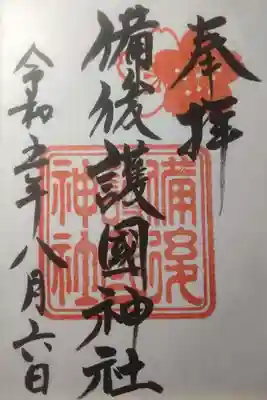 奉拝
備後護國神社
令和五年八月六日
備後
神社